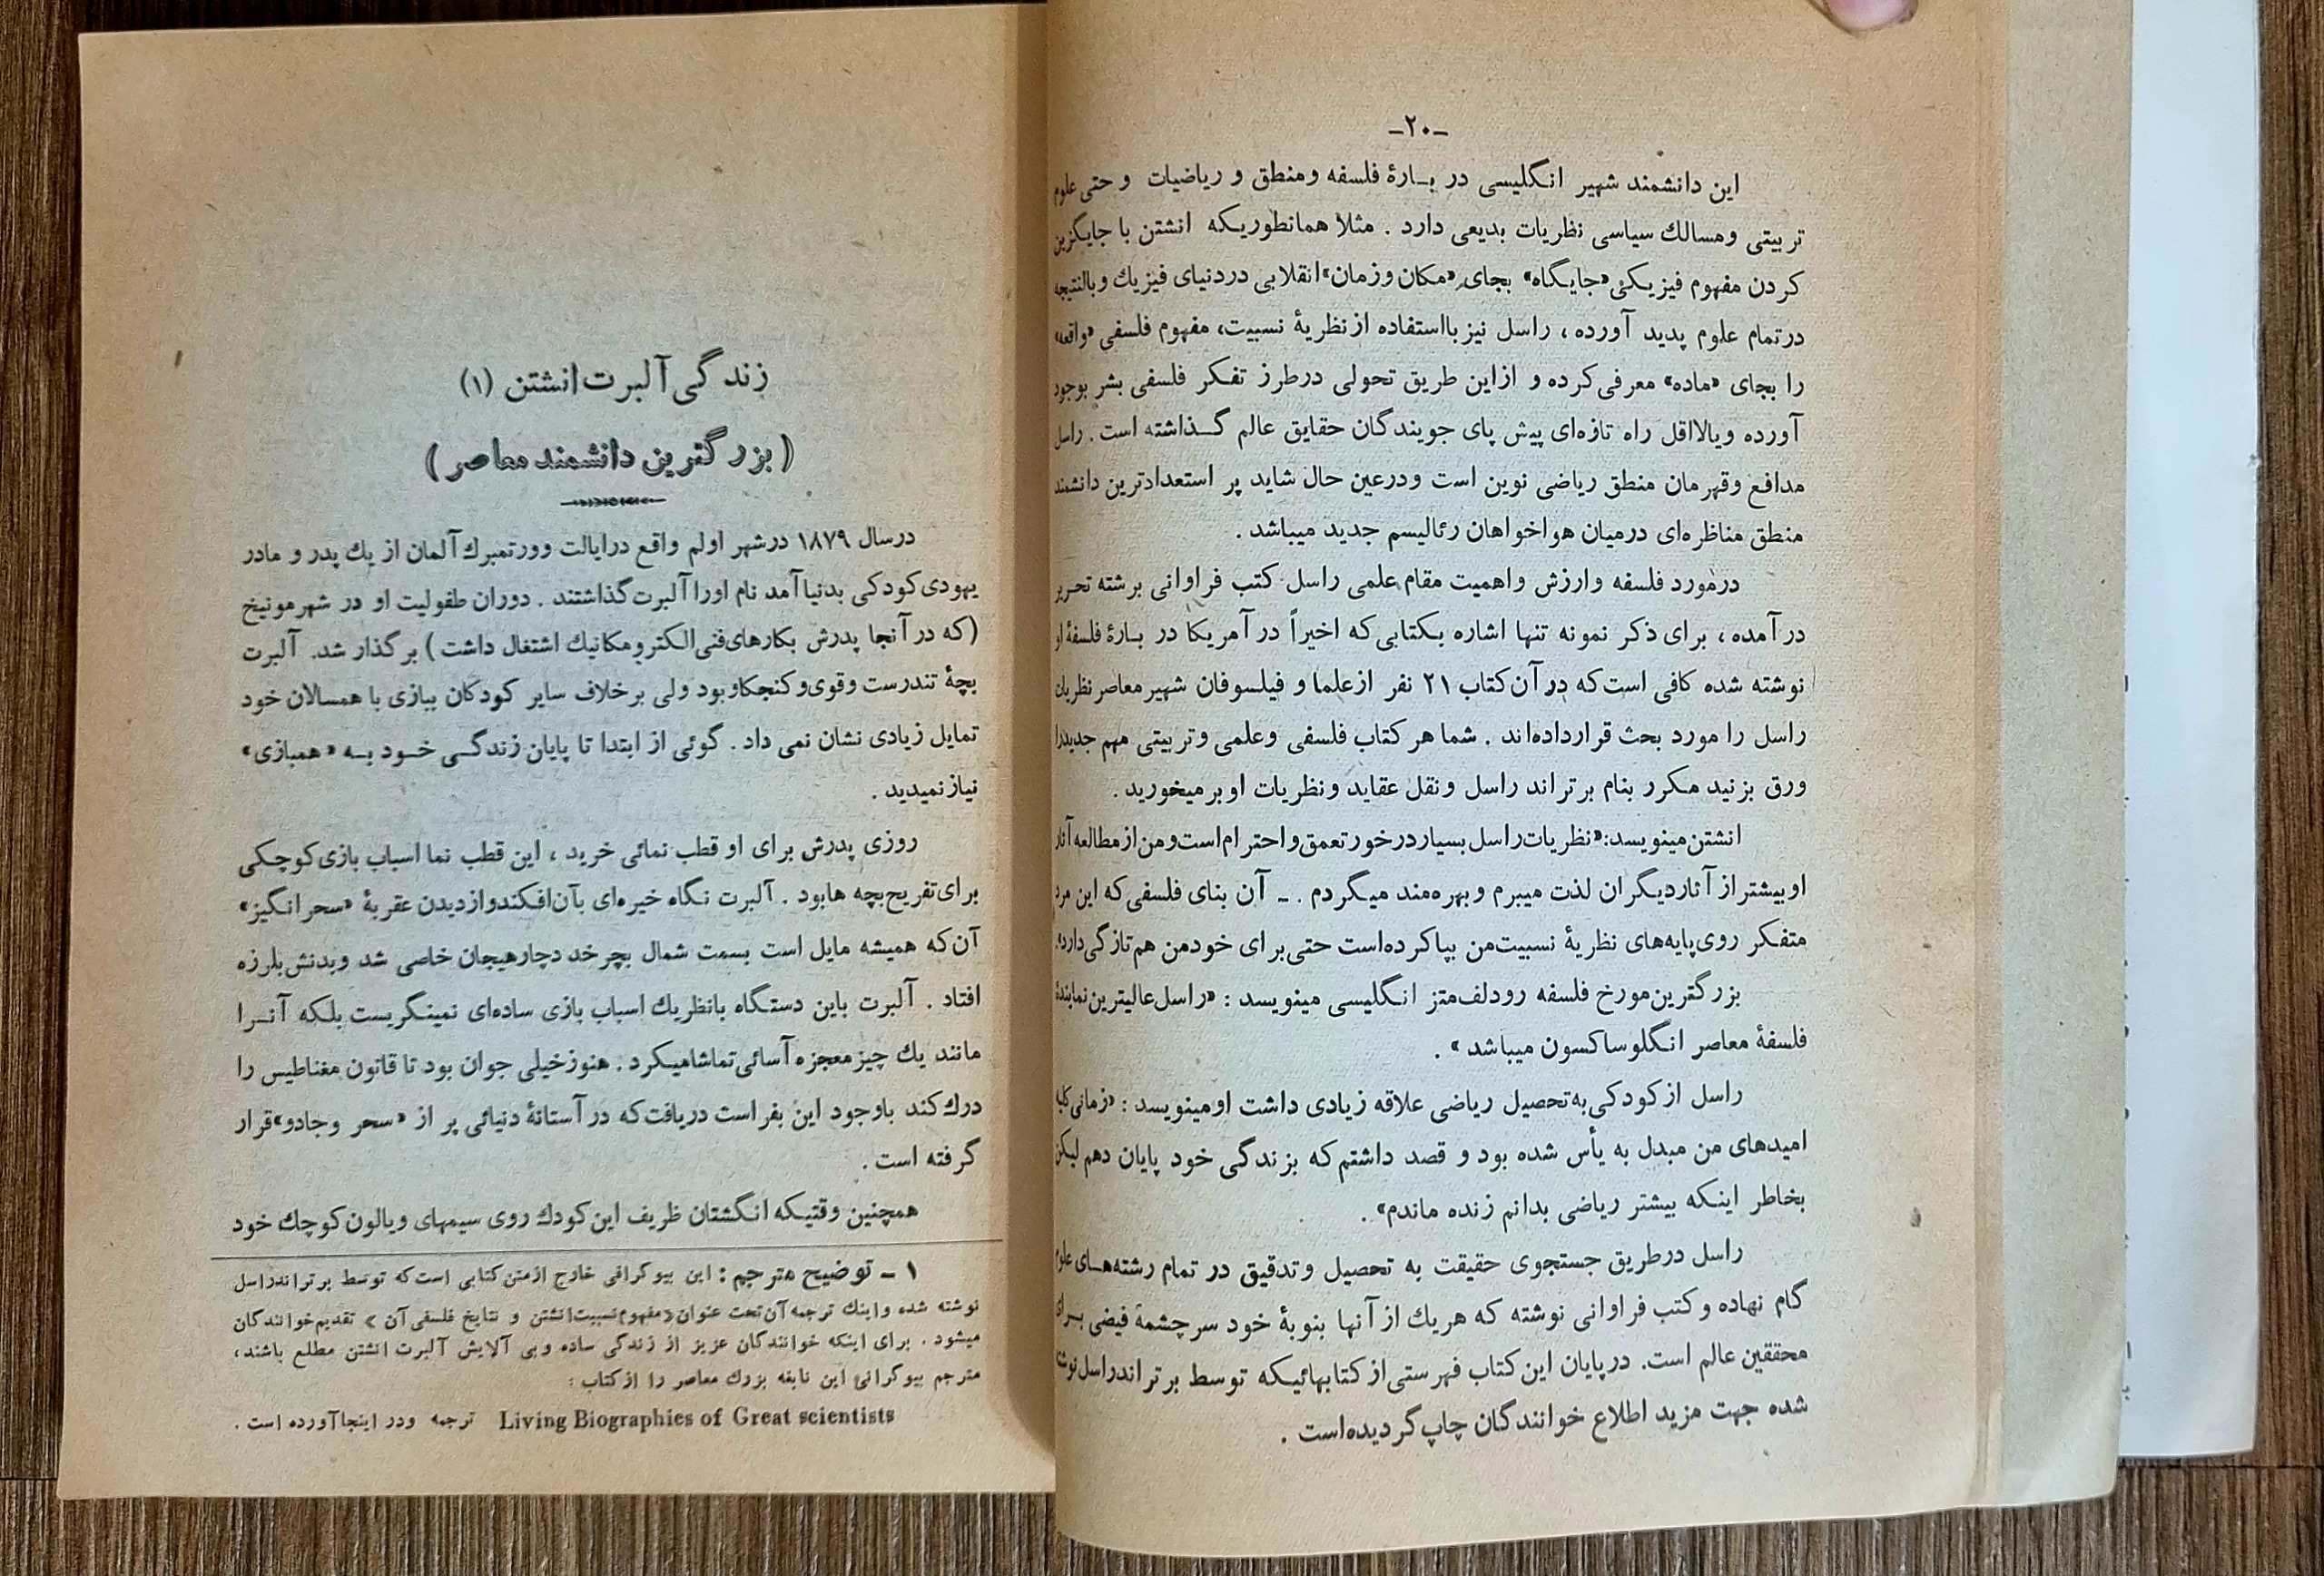 -۲۰-
این دانشمند شهیر انگلیسی در بـارهٔ فلسفه ومنطق و ریاضیات و حتی علوم
تربیتی ومسالك سیاسی نظریات بدیعی دارد . مثلا همانطوریکه انشتن با جایگزین
کردن مفهوم فیزیکی «جایگاه» بجای «مکان وزمان» انقلابی دردنیای فیزیك وبالنتیجه
درتمام علوم پدید آورده ، راسل نیز بااستفاده از نظریهٔ نسبیت، مفهوم فلسفی «واقعه»
را بجای «ماده» معرفی کرده و ازاین طریق تحولی درطرز تفکر فلسفی بشر بوجود
آورده ویالااقل راه تازه‌ای پیش پای جویندگان حقایق عالم گـذاشته است . راسل
مدافع وقهرمان منطق ریاضی نوین است ودرعین حال شاید پر استعدادترین دانشمند
منطق مناظره‌ای درمیان هواخواهان رئالیسم جدید میباشد .
درمورد فلسفه وارزش واهمیت مقام علمی راسل کتب فراوانی برشته تحریر
درآمده ، برای ذکر نمونه تنها اشاره بکتابی که اخیراً درآمریکا در بـارهٔ فلسفهٔ او
نوشته شده کافی است که در آن کتاب ۲۱ نفر ازعلما و فیلسوفان شهیر معاصر نظریات
راسل را مورد بحث قرارداده‌اند . شما هر کتاب فلسفی وعلمی وتربیتی مهم جدیدرا
ورق بزنید مکرر بنام برتراند راسل ونقل عقاید ونظریات اوبرمیخورید .
انشتن مینویسد: «نظریات راسل بسیار درخور تعمق واحترام است ومن از مطالعه آثار
اوبیشتر از آثار دیگران لذت میبرم وبهره‌مند میگردم . ـ آن بنای فلسفی که این مرد
متفکر روی پایه‌های نظریهٔ نسبیت من بپا کرده‌است حتی برای خودمن هم تازگی دارد».
بزرگترین مورخ فلسفه رودلف متز انگلیسی مینویسد : «راسل عالیترین نمایندهٔ
فلسفهٔ معاصر انگلوساکسون میباشد » .
راسل از کودکی به تحصیل ریاضی علاقه زیادی داشت اومینویسد : «زمانی کلیه
امیدهای من مبدل به یأس شده بود و قصد داشتم که بزندگی خود پایان دهم لیکن
بخاطر اینکه بیشتر ریاضی بدانم زنده ماندم» .
راسل درطریق جستجوی حقیقت به تحصیل وتدقیق در تمام رشته‌هـای علوم
گام نهاده وکتب فراوانی نوشته که هریك از آنها بنوبهٔ خود سرچشمهٔ فیضی بـرای
محققین عالم است. درپایان این کتاب فهرستی از کتابهائیکه توسط برتراندراسل نوشته
شده جهت مزید اطلاع خوانندگان چاپ گردیده‌است .
زندگی آلبرت انشتن (۱)
(بزرگترین دانشمند معاصر)
درسال ۱۸۷۹ درشهر اولم واقع درایالت وورتمبرك آلمان از یك پدر و مادر
یهودی کودکی بدنیا آمد نام اورا آلبرت گذاشتند . دوران طفولیت او در شهر مونیخ
(که در آنجا پدرش بکارهای فنی الکترومکانیك اشتغال داشت) برگذار شد. آلبرت
بچهٔ تندرست وقوی وکنجکاو بود ولی برخلاف سایر کودکان ببازی با همسالان خود
تمایل زیادی نشان نمی داد . گوئی از ابتدا تا پایان زندگـی خـود بـه «همبازی»
نیاز نمیدید .
روزی پدرش برای او قطب نمائی خرید ، این قطب نما اسباب بازی کوچکی
برای تفریح بچه ها بود . آلبرت نگاه خیره‌ای بآن افکند و از دیدن عقربهٔ «سحر انگیز»
آن که همیشه مایل است بسمت شمال بچرخد دچار هیجان خاصی شد وبدنش بلرزه
افتاد . آلبرت باین دستگاه بانظریك اسباب بازی ساده‌ای نمینگریست بلکه آنـرا
مانند یك چیز معجزه آسائی تماشا میکرد . هنوز خیلی جوان بود تا قانون مغناطیس را
درك کند باوجود این بفراست دریافت که در آستانهٔ دنیائی پر از «سحر وجادو» قرار
گرفته است .
همچنین وقتیکه انگشتان ظریف این کودك روی سیمهای ویالون کوچك خود
۱ - توضیح مترجم : این بیوگرافی خارج ازمتن کتابی است که توسط برتراندراسل
نوشته شده واینك ترجمه آن تحت عنوان «مفهوم نسبیت انشتن و نتایج فلسفی آن » تقدیم خوانندگان
میشود . برای اینکه خوانندگان عزیز از زندگی ساده وبی آلایش آلبرت انشتن مطلع باشند ،
مترجم بیوگرافی این نابغه بزرك معاصر را از کتاب :
Living Biographies of Great scientists ترجمه ودر اینجا آورده است .